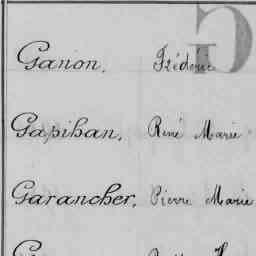 G
Ganion, Frédéric
Gapihan, René Marie
Garancher, Pierre Marie